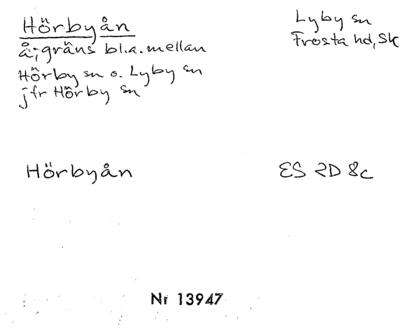 Hörbyån
å; gräns bl.a. mellan
Hörby sn o. Lyby sn
jfr Hörby sn
Lyby sn
Frosta hd, Sk
Hörbyån
ES 2D 8c
Nr 13947